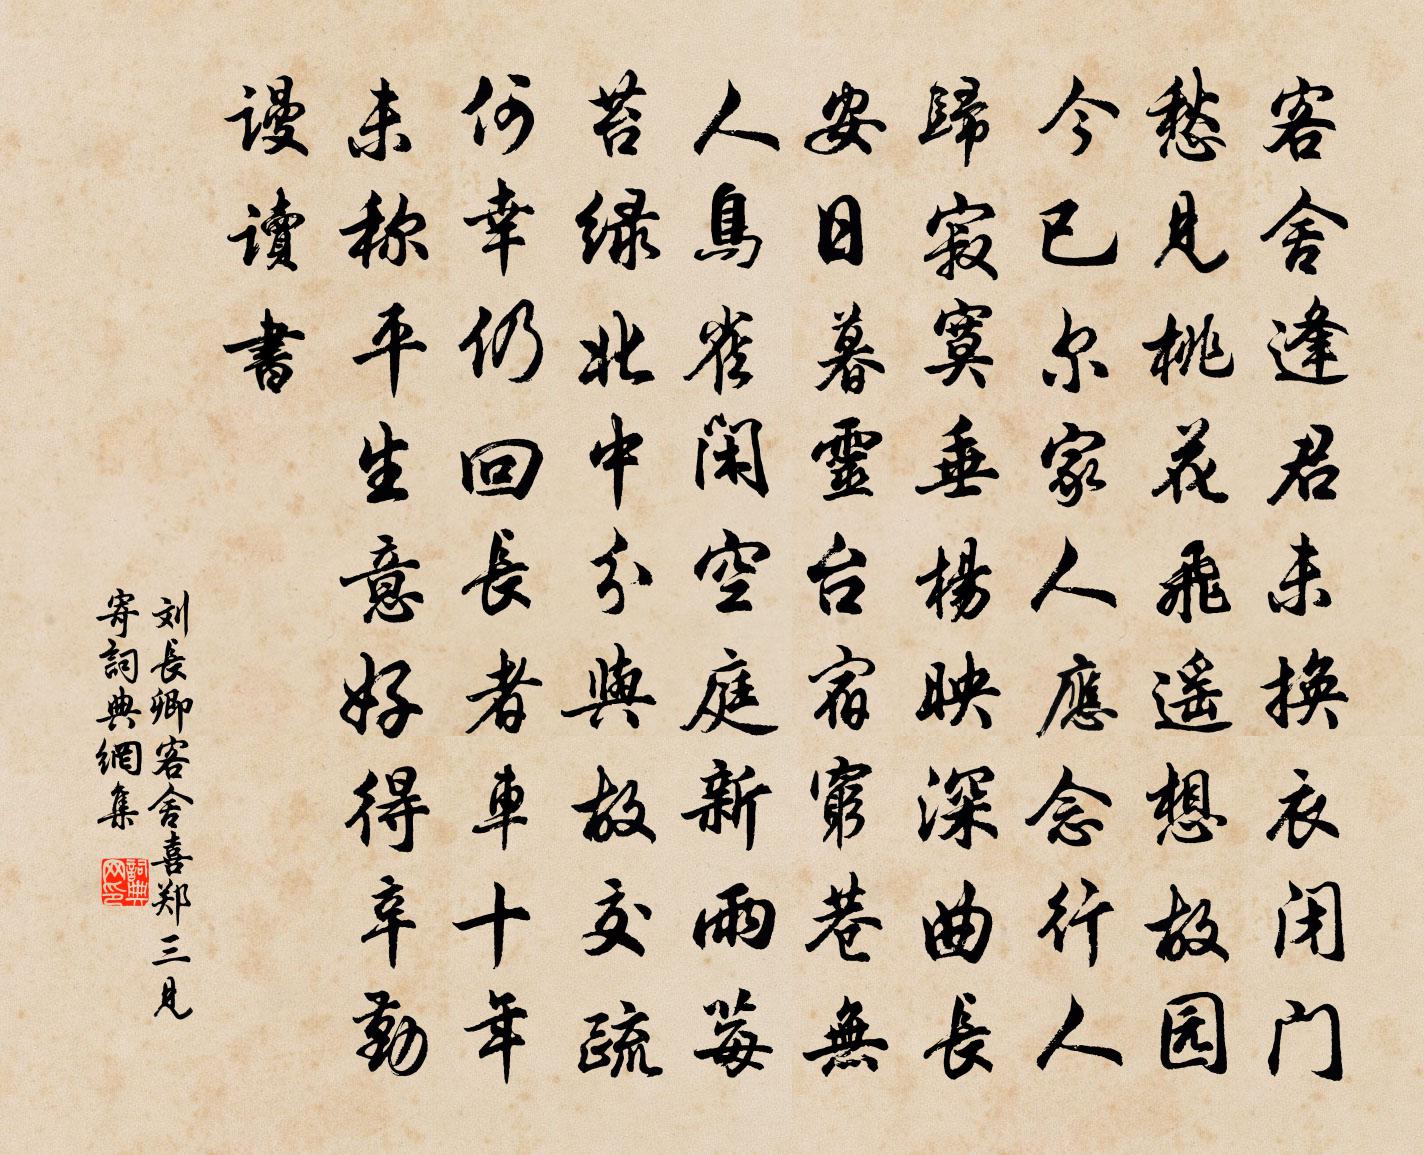 客舍逢君未换衣闭门
愁見桃花飛遥想故园
今已尔家人應念行人
歸寂寞垂楊映深曲長
安日暮靈台宿窮巷無
人鳥雀閑空庭新雨莓
苔绿北中分與故交疏
何幸仍回長者車十年
未称平生意好得辛勤
谩讀書
刘長卿客舍喜郑三見
寄詞典網集
詞典
网印